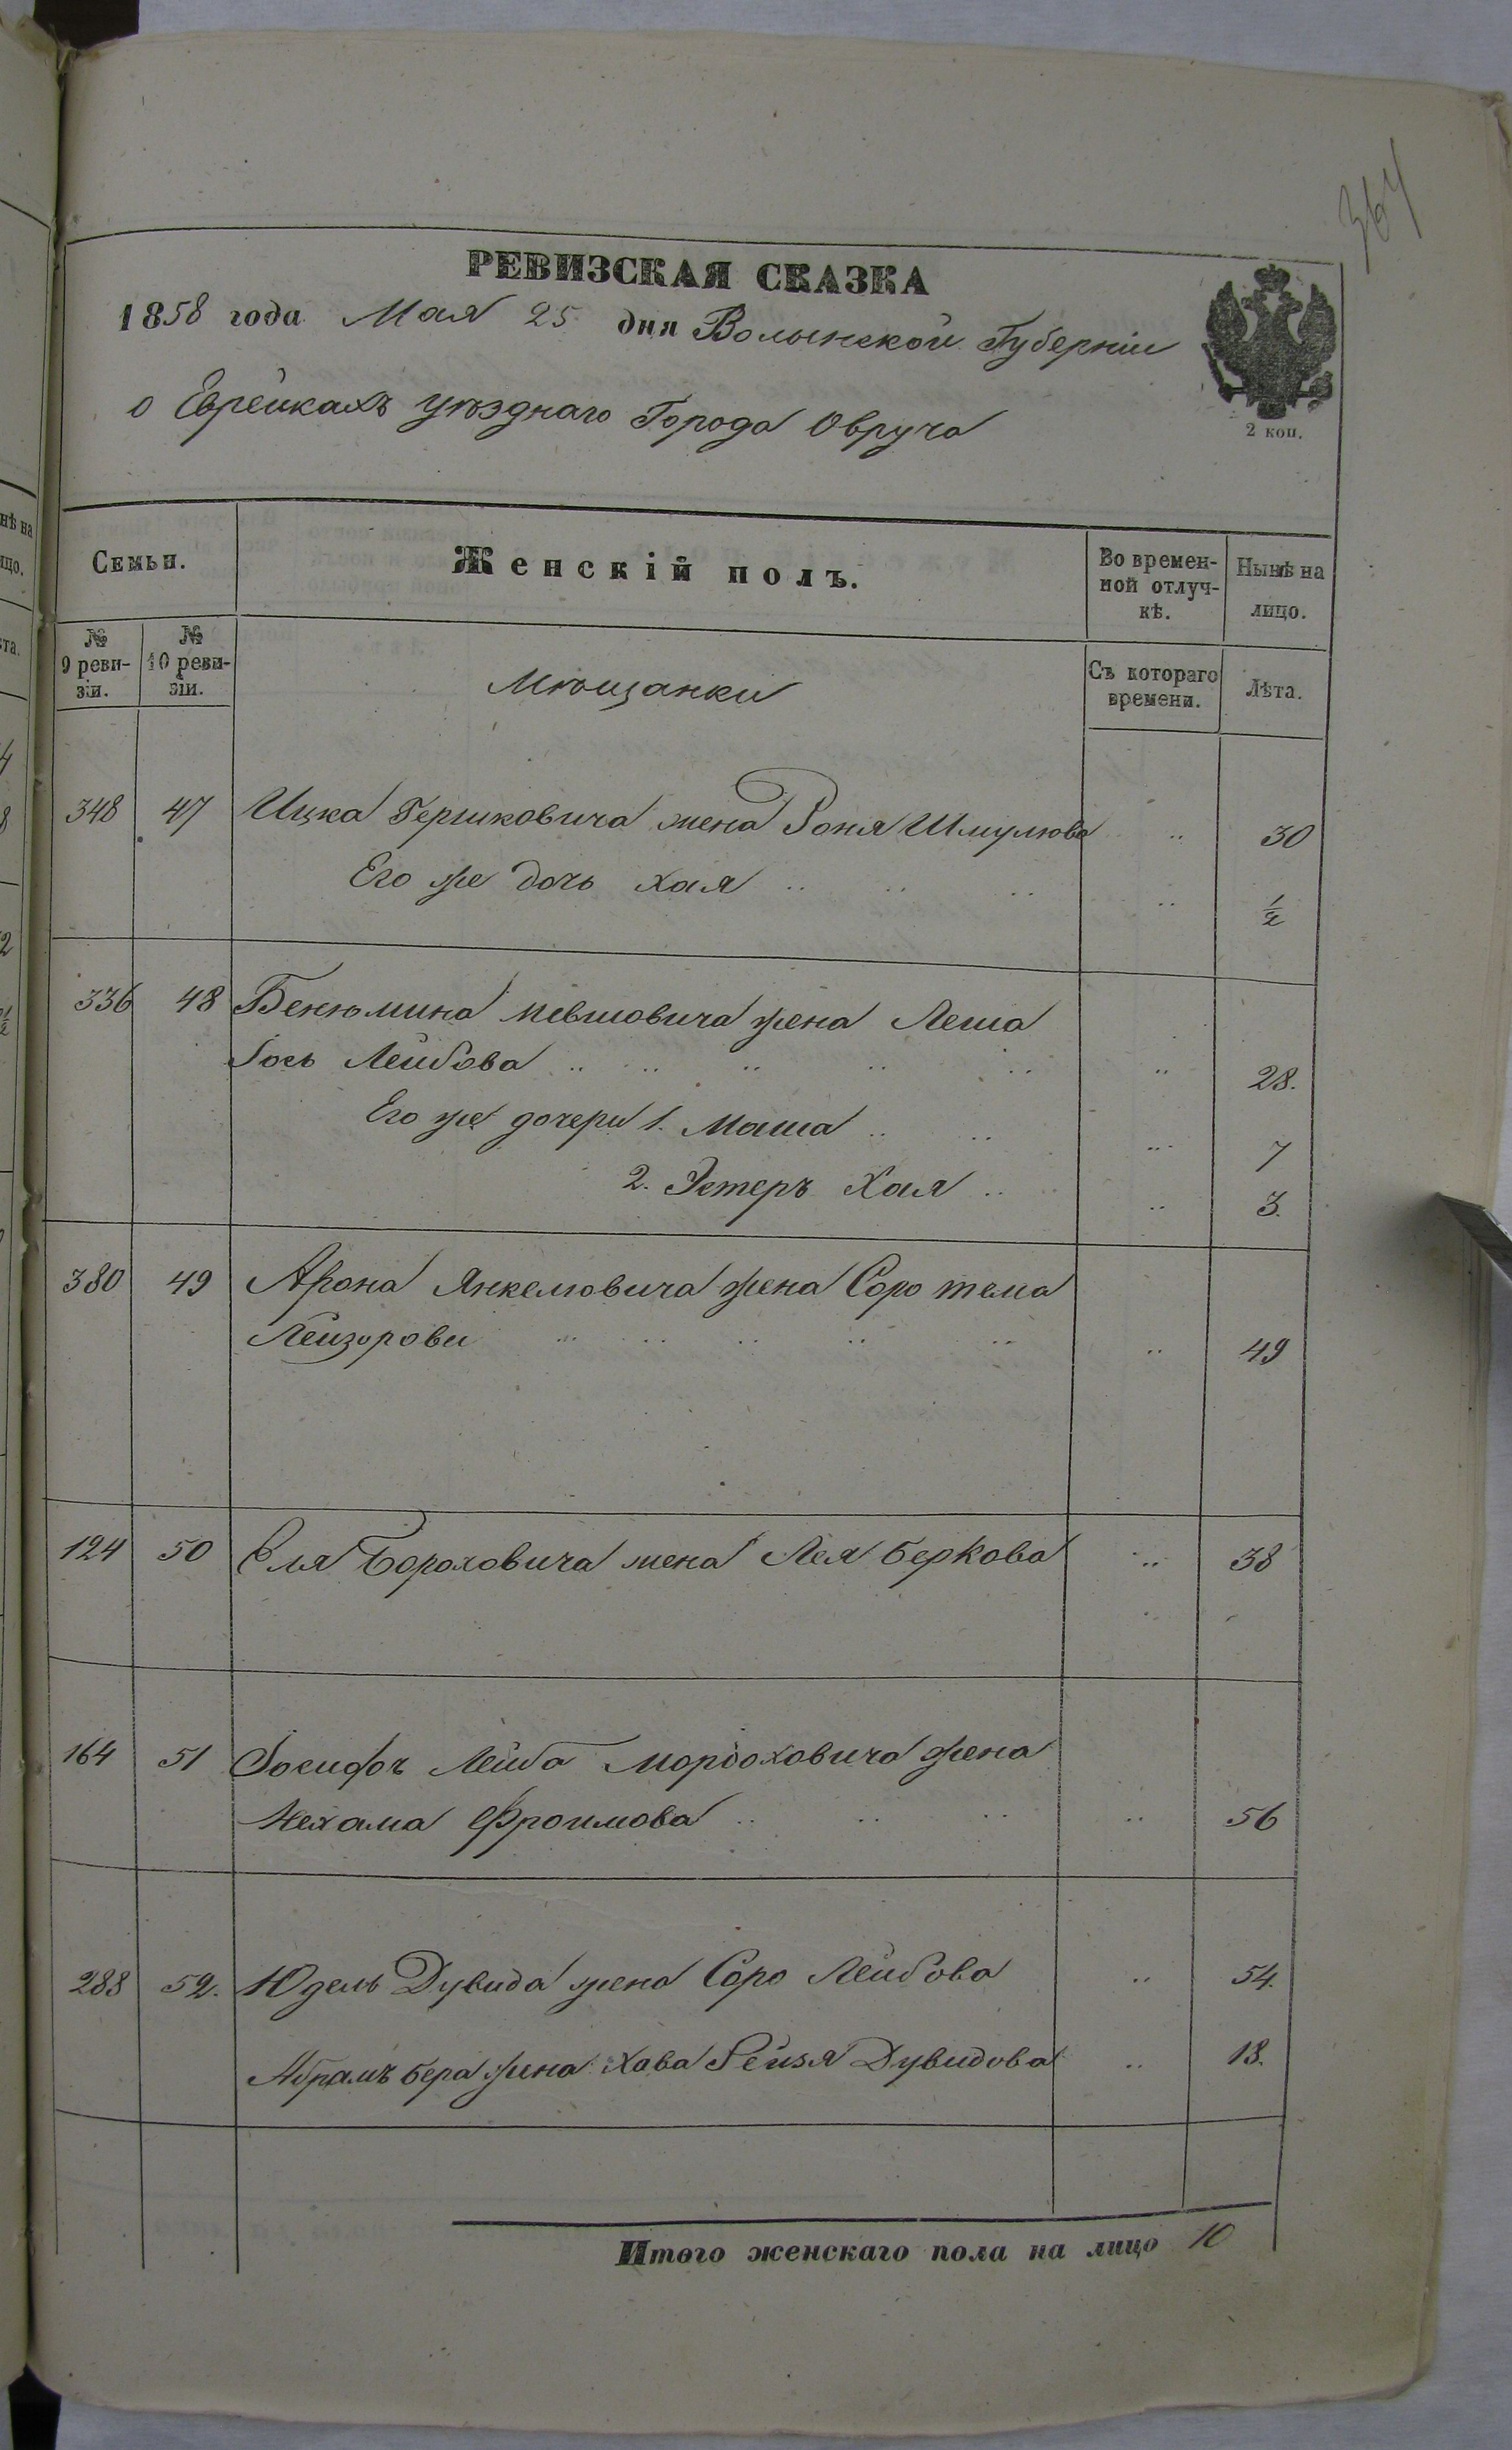 364
РЕВИЗСКАЯ СКАЗКА
1858 года Мая 25 дня Волынской Губерніи
2 коп.
о Еврейкахъ уѣзднаго Города Овруча
Семьи. Женскій полъ. Во времен-ной отлуч-кѣ. Нынѣ на лицо.
№ 9 реви-зіи. № 10 реви-зіи. Мѣщанки Съ котораго времени. Лѣта.
348 47 Ицка Гершковича жена Роня Шмулюва 30
Его же дочь Хая 1/2
336 48 Бенюмина жена Леша
Лейбова 28.
Его же дочери 1. Маша 7
2. Эстеръ Хая 3.
380 49 Арона Янкелювича жена Соро тема
Лейзорови 49
124 50 Еля Бороховича жена Лея Беркова 38
164 51 Іосифъ Лейба Мордоховича жена
Нехама Фроимова 56
288 52. Юдель Дувида жена Соро Лейбова 54.
Абрамъ Бера жена Хава Рейзя Дувидова 18.
Итого женскаго пола на лицо 10